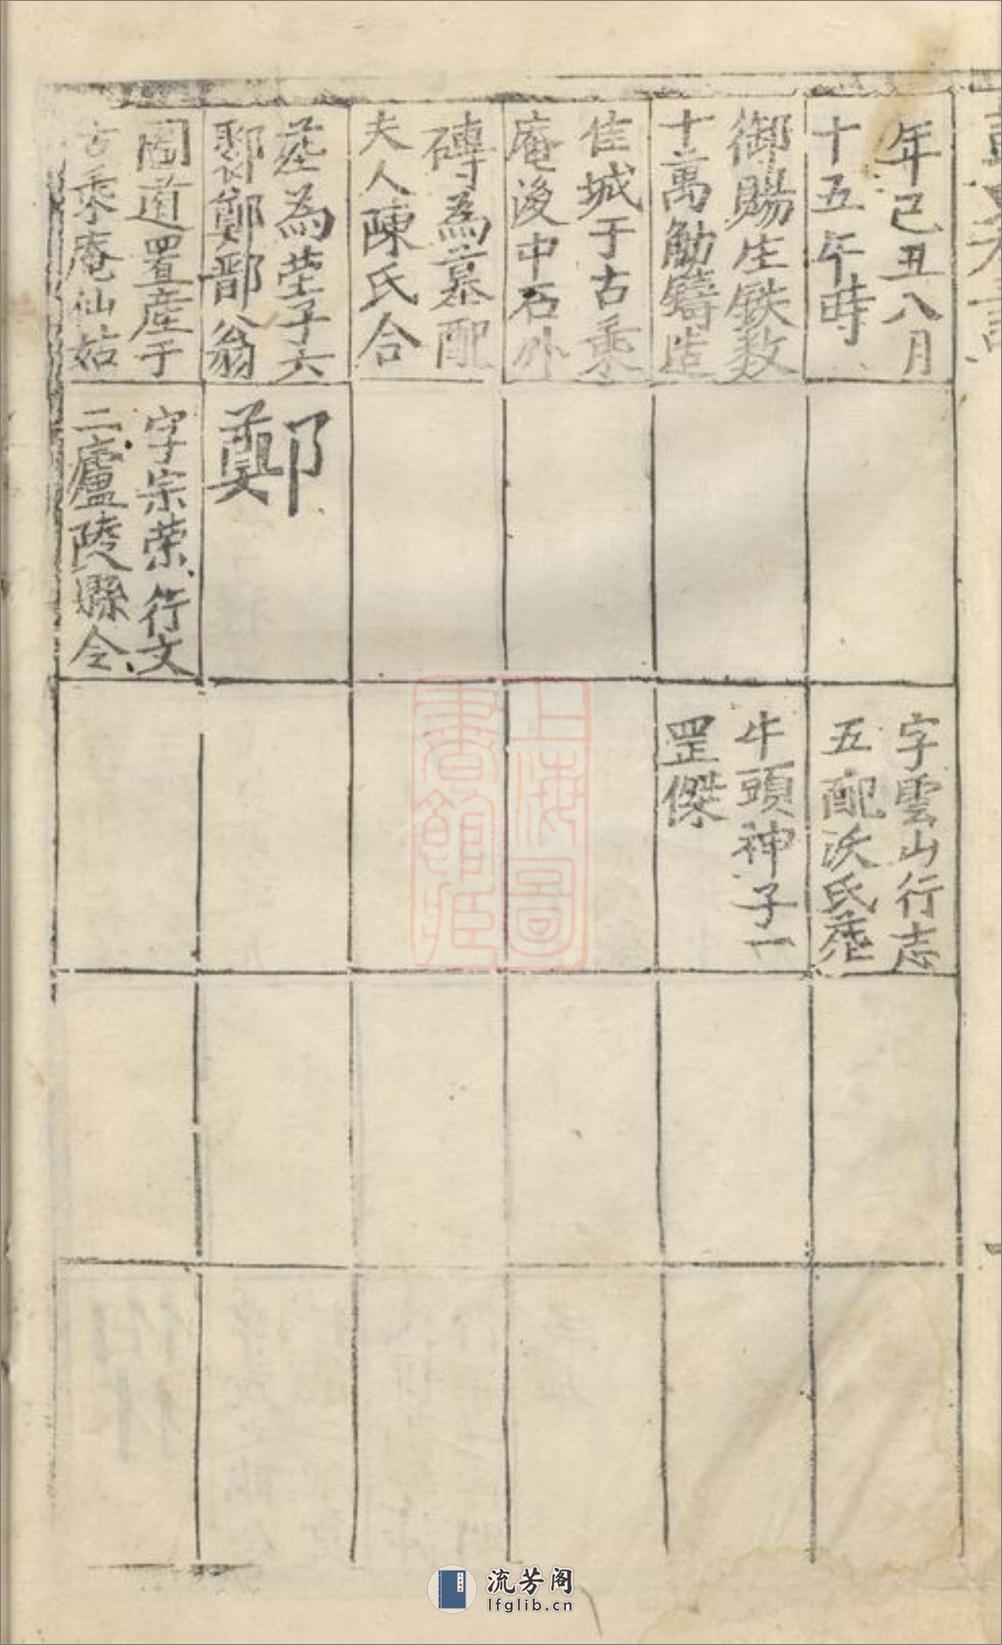 年己丑八月
十五午時
御賜生鉄数
十萬觔鑄造
佳城于古乗
庵後中石外
磚為墓配
夫人陳氏合
塟為茔子六
鄭部翁
圖道置産于
古乗庵仙姑
鄭
字宗荣行文
二廬陵縣令
字雲山行志
五配沃氏塟
牛頭神子一
罡傑
上海圖
書館藏
流芳阁
lfglib.cn